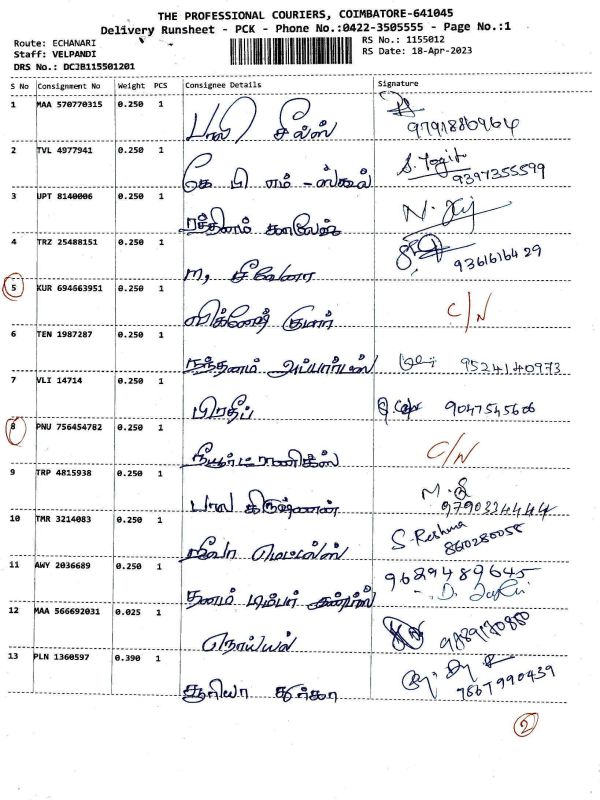 THE PROFESSIONAL COURIERS, COIMBATORE-641045
Delivery Runsheet - PCK - Phone No.:0422-3505555 - Page No.:1
Route: ECHANARI
RS No.: 1155012
Staff: VELPANDI
RS Date: 18-Apr-2023
DRS No.: DCJB115501201
S No Consignment No Weight PCS Consignee Details Signature
1 MAA 570770315 0.250 1
9791880964
2 TVL 4977941 0.250 1
S. Yogit
கே பி எம் - ஸ்கூல் 9397355599
3 UPT 8140006 0.250 1
ரத்தினம் காலேஜ்
4 TRZ 25488151 0.250 1
9361616429
5 KUR 694663951 0.250 1
C/N
விக்னேஷ் குமார்
6 TEN 1987287 0.250 1
நந்தனம் அப்பார்ட்மென்ஸ் 9524140973
7 VLI 14714 0.250 1
பிரதீப் 9047545606
8 PNU 756454782 0.250 1
C/N
9 TRP 4815938 0.250 1
பால கிருஷ்ணன் 9790334444
10 TMR 3214083 0.250 1
S. Reshma
860280058
11 AWY 2036689 0.250 1
9629489645
12 MAA 566692031 0.025 1
நொய்யல் 9789170880
13 PLN 1360597 0.390 1
சூரியா துர்கா 7867990439
2